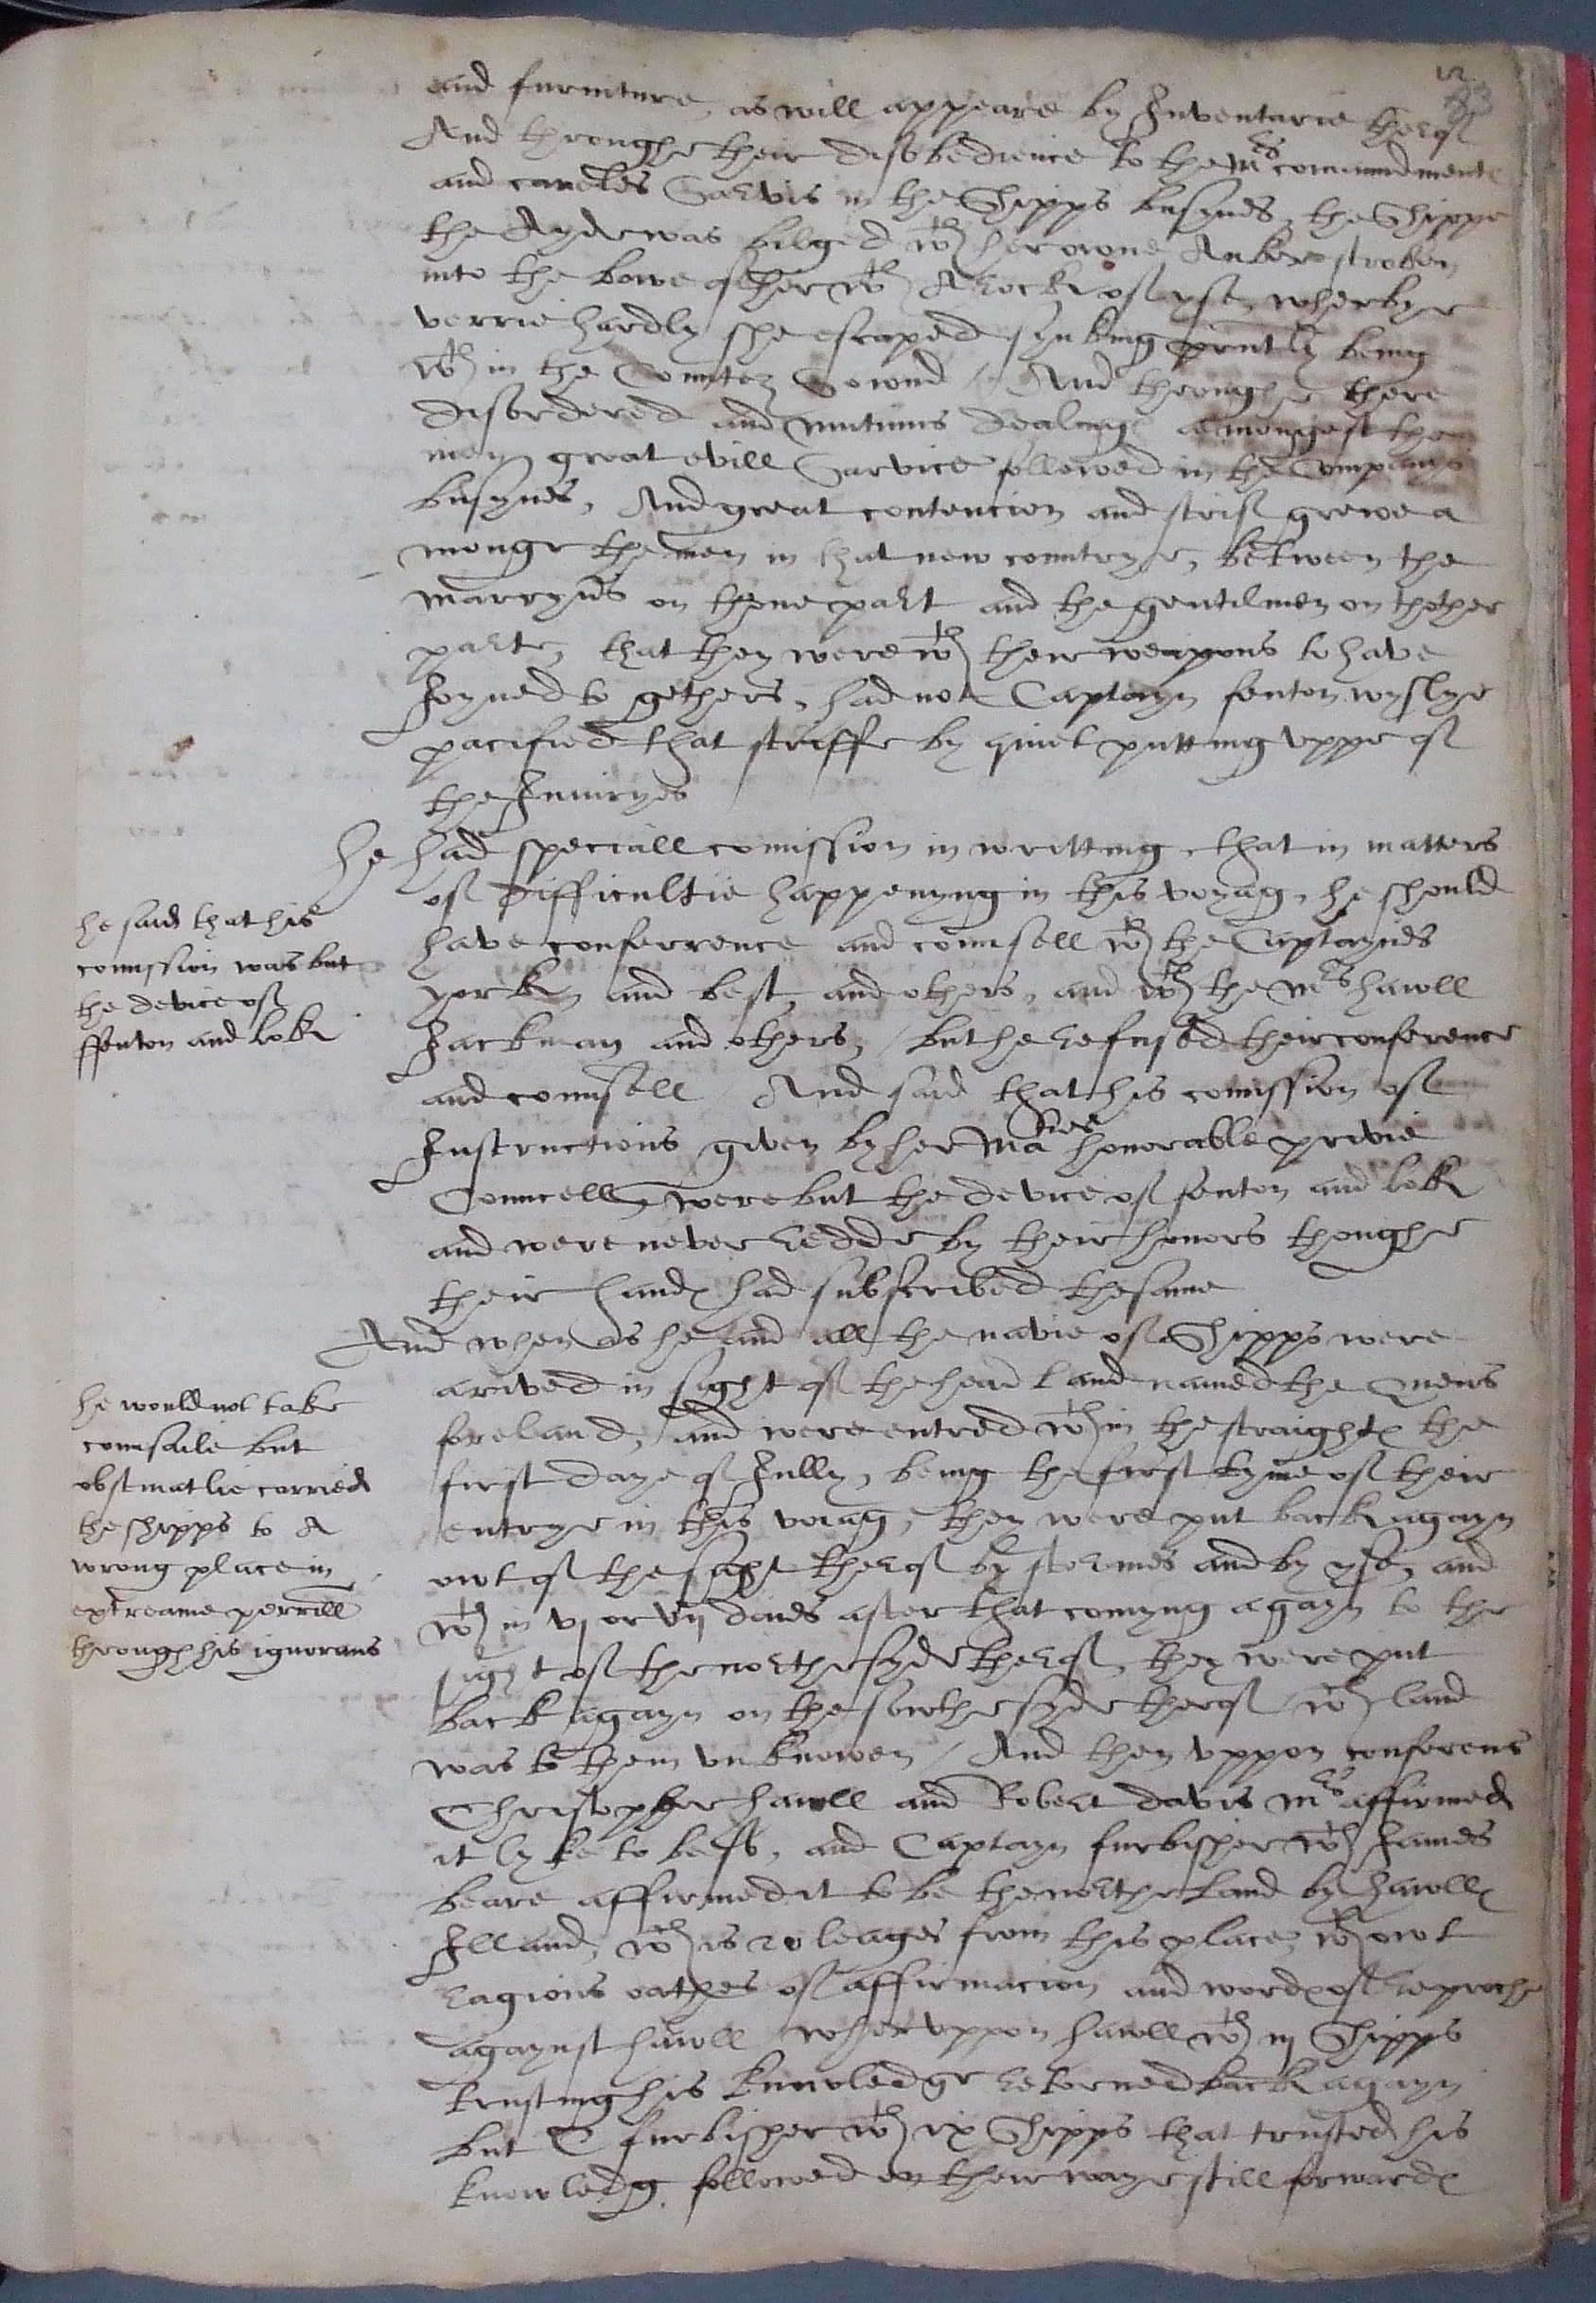 12
83
and furniture, as will appeare by Inventarie therof
And throughe their disobedience to the mrs comaundmente
and careles Sarvis in the Shipps busynes, the Shippe
the Ayde was bilged wth her owne Anker stroken
into the bowe of her wth A rock of yse, wherbye
verrie hardly she escaped synking prntly being
wth in the Countez Sownd / And throughe there
disordered and mutinus dealinge amongest the
men great evill Sarvice followed in the Companys
busynes, And great contencion and strif grewe a
monge the men in that new countrye, between the
marryns on thone part and the gentilmen on thother
parte, that they were wth their weapons to have
Joyned to gethers, had not Captayn fenton wyslye
pacified that striffe by quiet putting uppe of
the Iniuryes
He had speciall comission in writting, that in matters
of difficultie happenyng in this voyag, he should
have conferrence and counsell wth the Captaynes
york, and best, and others, and wth the mrs hawll
Jackman and others, / but he refused their conference
and counsell / And said that his comission of
Instructions given by her Maties honorable privie
Councell, were but the device of fenton and lok
and were never redde by their honors thoughe
their hands had subscribed the same
he said that his
comission was but
the device of
ffenton and lok
And when as he and all the navie of Shipps were
arived in sight of the head land named the Quens
foreland, and were entred wth in the straights the
first daye of Jully, being the first tyme of their
entrye in this voiag, they were put back agayn
owt of the sight therof by stormes and by yse, and
wth in vj or vij daies after that comyng agayn to the
sight of the northe syde therof, they were put
back agayn on the sowthe syde therof / wch land
was to them unknowen / And then uppon conferens
Christopher hawll and Robert davis mrs affirmed
it lyke to be so, and Captayn furbisher wth James
beare affirmed it to be the northe land by hawlls
Illand, wch is 20 leages from this place, wth owt
ragious oathes of affirmacion and words of reproche
agaynst hawll / wheruppon hawll wth iij Shipps
trusting his knowledge retorned back agayn
but C furbisher wth ix Shipps that trusted his
knowledg followed on their waye still forwards
he would not take
counsaile but
obstinatlie carried
the shipps to A
wrong place in
extreame perrill
through his ignorans